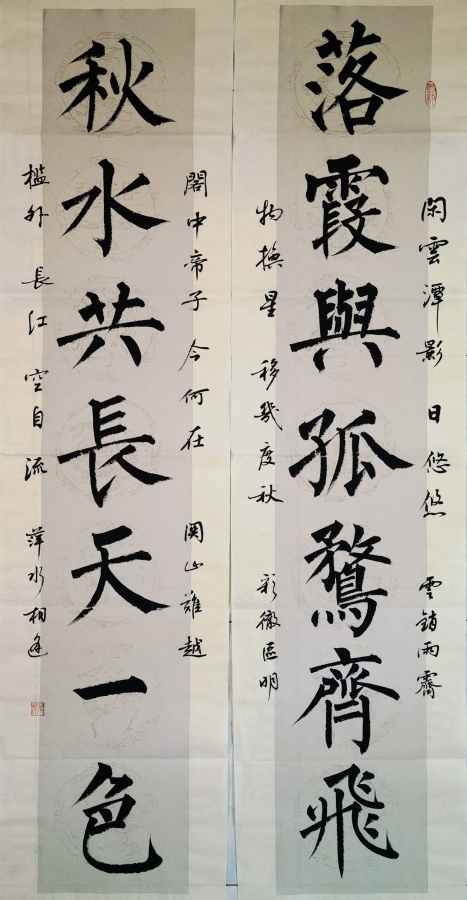 閑雲潭影日悠悠 雲銷雨霽
落霞與孤鶩齊飛
物換星移幾度秋 彩徹區明
閣中帝子今何在 関山難越
秋水共長天一色
檻外長江空自流 萍水相逢